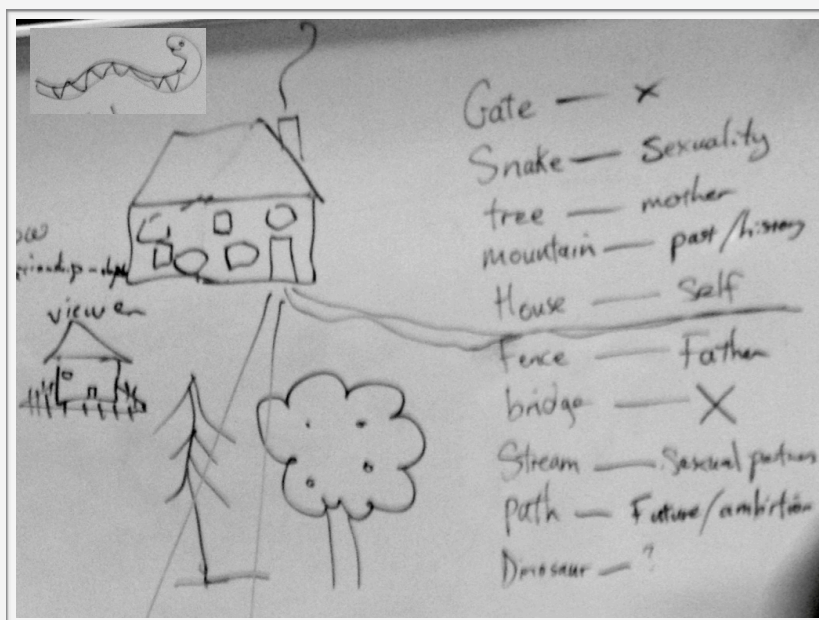 Gate — x
Snake — Sexuality
tree — mother
mountain — past/history
House — Self
Fence — Father
bridge — X
Stream — Sexual partners
path — Future/ambirtion
Dinosaur — ?
viewer